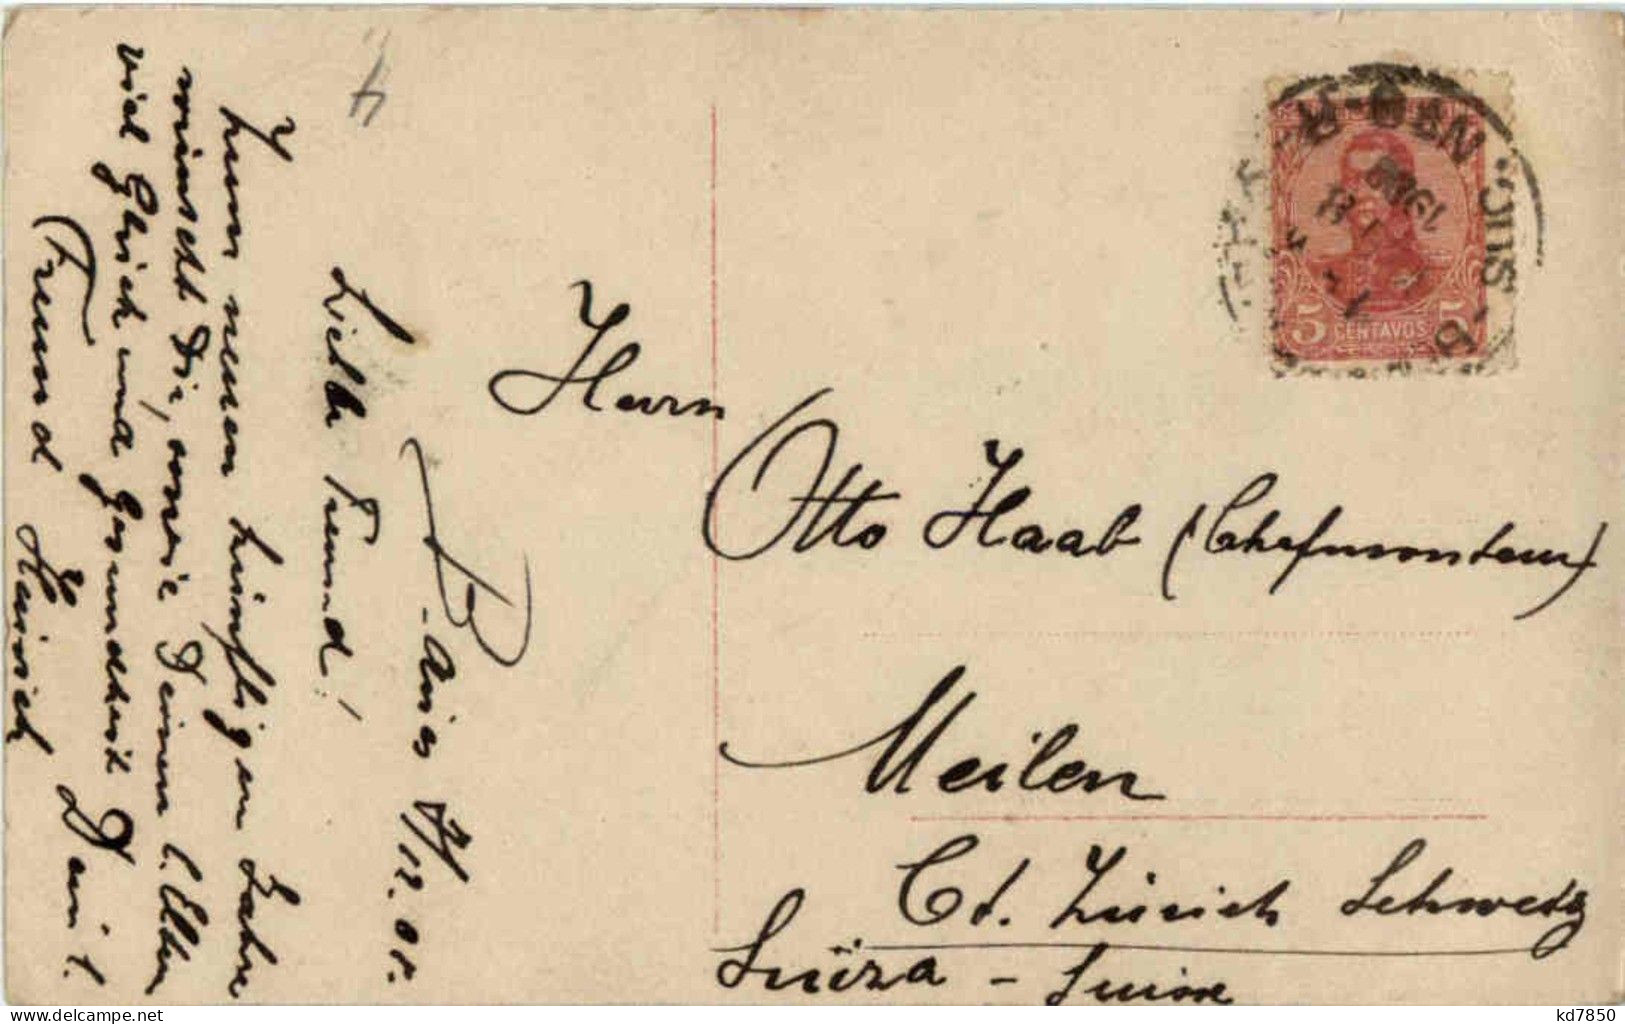 B-Aires 12.08.
Lieber Freund!
Zum neuen künftigen Jahre
wünscht Dir, sowie Deinen l. Eltern
viel Glück und Gesundheit Dein l.
Freund Heinrich
4
Herrn
Otto Haab (Chefmonteur)
Meilen
Ct. Zürich Schweiz
Suiza - Suisse
5 CENTAVOS 5
kd7850